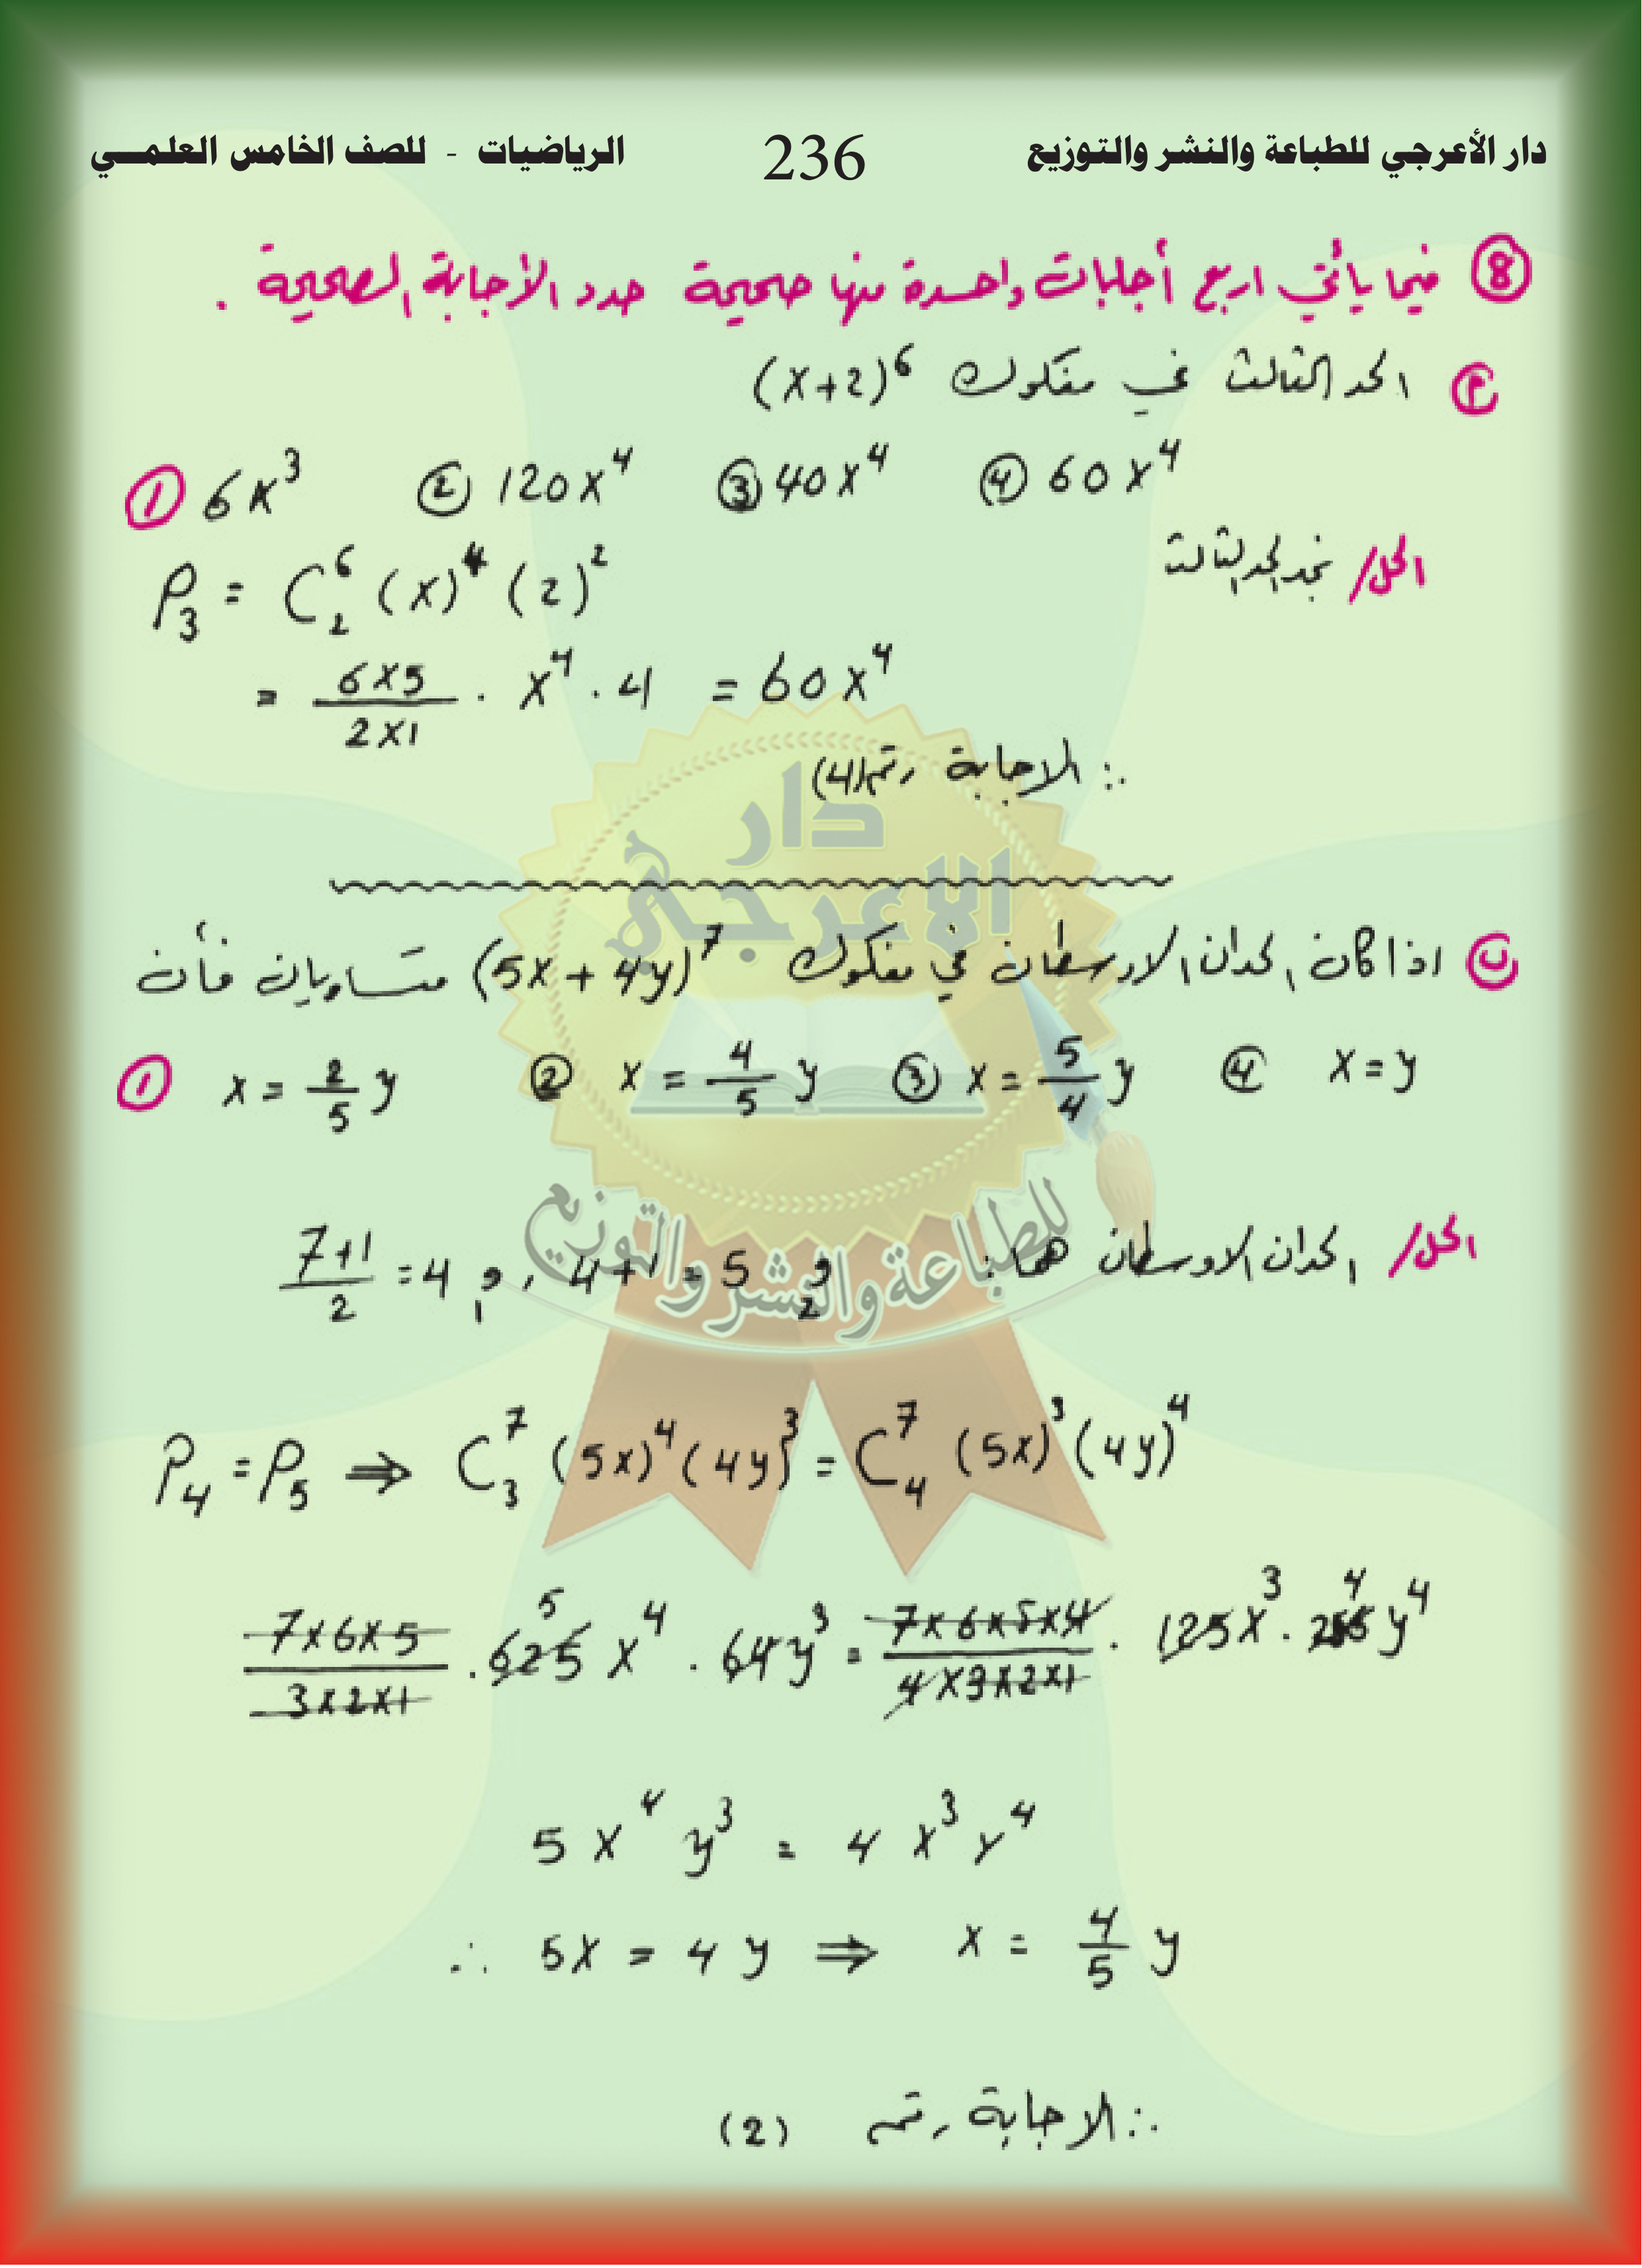 دار الأعرجي للطباعة والنشر والتوزيع 236 الرياضيات - للصف الخامس العلمي
⑧ فيما يأتي اربع أجابات واحدة منها صحيحة حدد الأجابة الصحيحة .
الحد الثالث في مفكوك (x+2)⁶
① 6x³ ② 120x⁴ ③ 40x⁴ ④ 60x⁴
الحل/ نجد الحد الثالث
P₃ = C⁶₂ (x)⁴ (2)²
= (6×5)/(2×1) · x⁴ · 4 = 60x⁴
∴ الاجابة رقم (4)
دار
الاعرجي
ب اذا كان الحدان الاوسطان في مفكوك (5x+4y)⁷ متساويان فأن
① x = 2/5 y ② x = 4/5 y ③ x = 5/4 y ④ x = y
للطباعة والنشر والتوزيع
الحل/ الحدان الاوسطان هما :
(7+1)/2 = 4 و₁ , 4+1 = 5 و₂
P₄ = P₅ ⇒ C⁷₃ (5x)⁴ (4y)³ = C⁷₄ (5x)³ (4y)⁴
(7×6×5)/(3×2×1) · 625 5 x⁴ · 64y³ = (7×6×5×4)/(4×3×2×1) · 125x³ · 256 4 y⁴
5x⁴ y³ = 4 x³ y⁴
∴ 5x = 4y ⇒ x = 4/5 y
∴ الاجابة رقم (2)